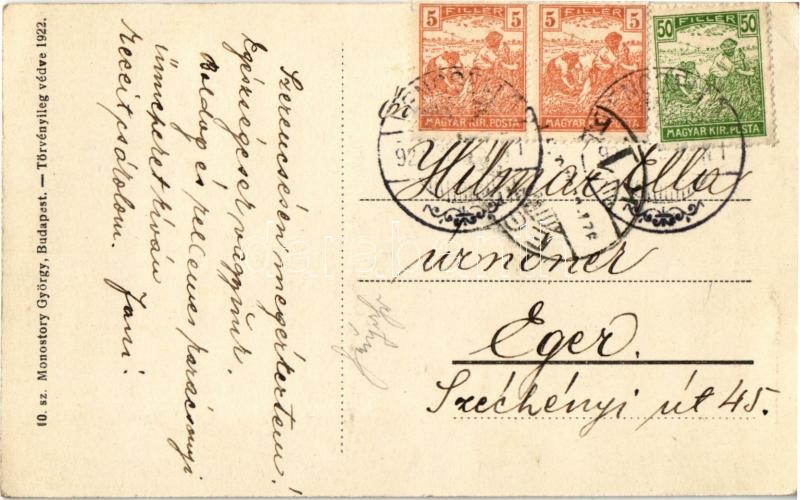 5 FILLÉR 5
MAGYAR KIR. POSTA
5 FILLÉR 5
MAGYAR KIR. POSTA
50 FILLÉR 50
MAGYAR KIR. POSTA
Szerencsésen megérkeztem!
Egészségesek vagyunk.
Boldog és kellemes karácsonyi
ünnepeket kíván
kezeit csókolom. Jani.
Hilmar Ella
úrnőnek
Eger.
Széchényi út 45.
10. sz. Monostory György, Budapest. — Törvényileg védve 1922.
darabanth